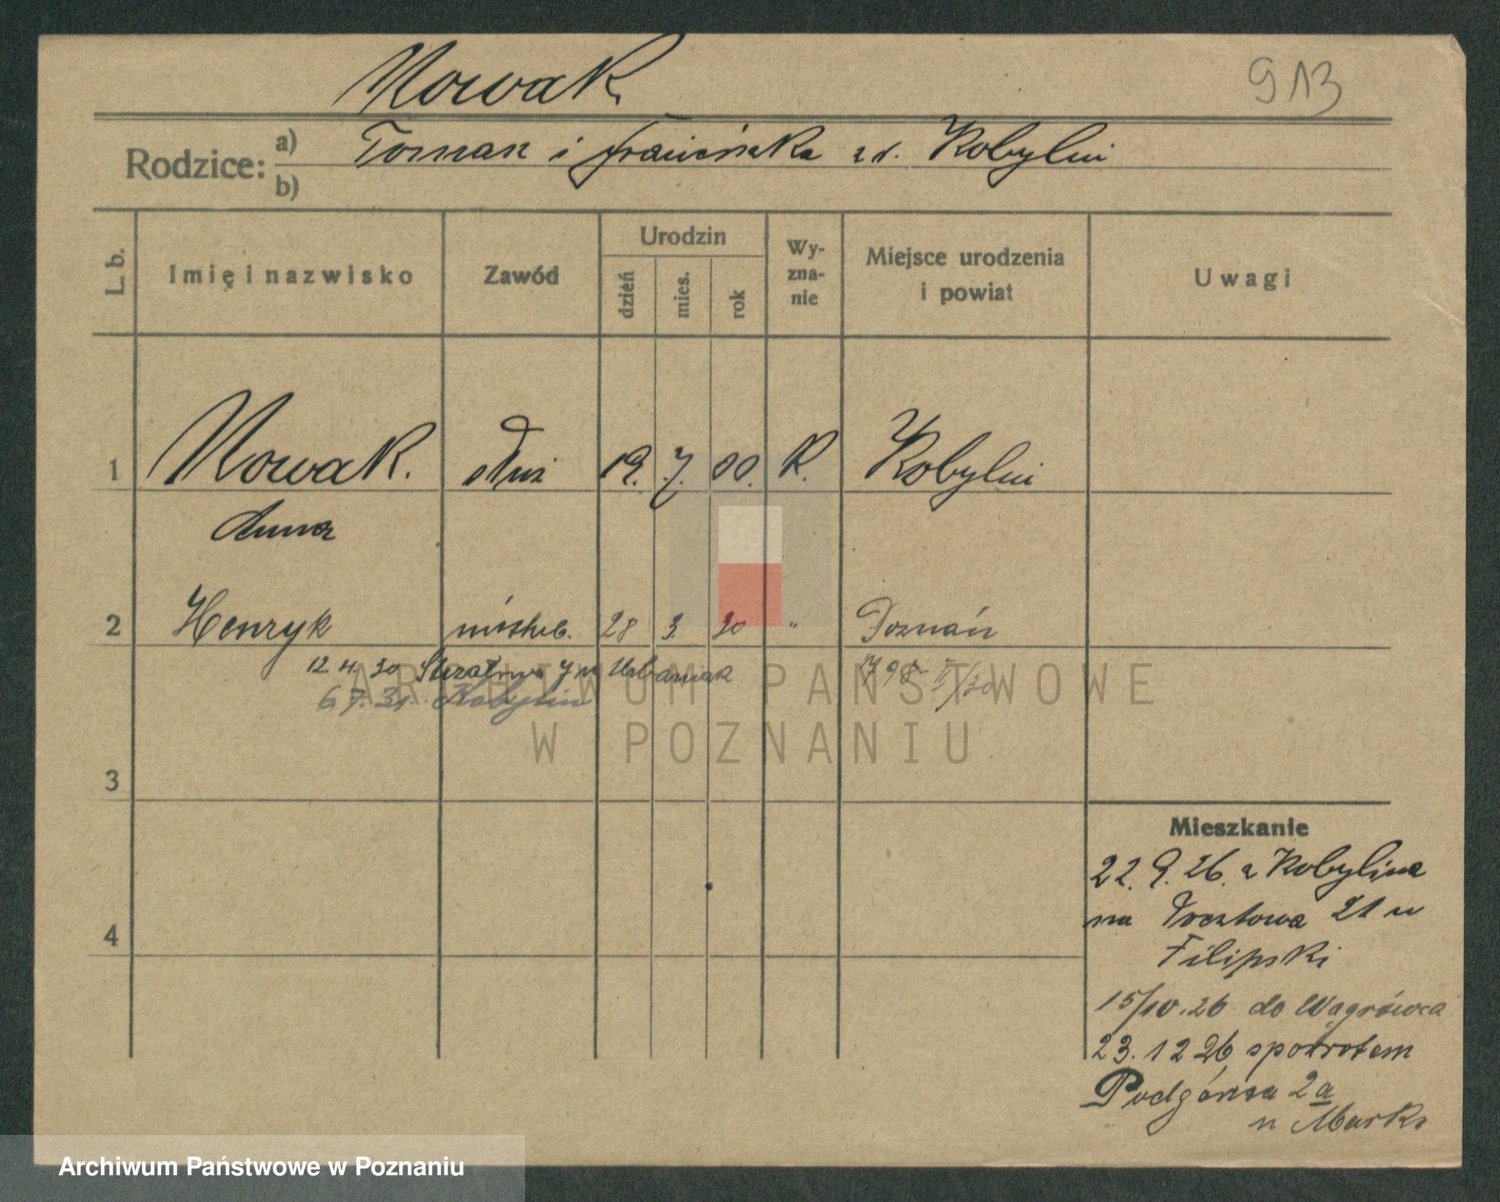 Nowak
913
Rodzice: a) Tomasz i Franciszka z d. Kobylin
b)
L. b.
Imię i nazwisko
Zawód
Urodzin
dzień
mies.
rok
Wy-
zna-
nie
Miejsce urodzenia
i powiat
Uwagi
1 Nowak. służ 19. 7. 00. R. Kobylin
Anna
2 Henryk nieślub. 28 3. 30 " Poznań
12 4. 30 Strzałowa 7 u Urbaniak
6 7. 31. Kobylin
3
4
Mieszkanie
22. 9. 26. z Kobylina
na Pocztowa 21 u
Filipski
15/10.26 do Wągrówca
23. 12 26 spowrotem
Podgórna 2a
u Marks
ARCHIWUM PAŃSTWOWE
W POZNANIU
Archiwum Państwowe w Poznaniu